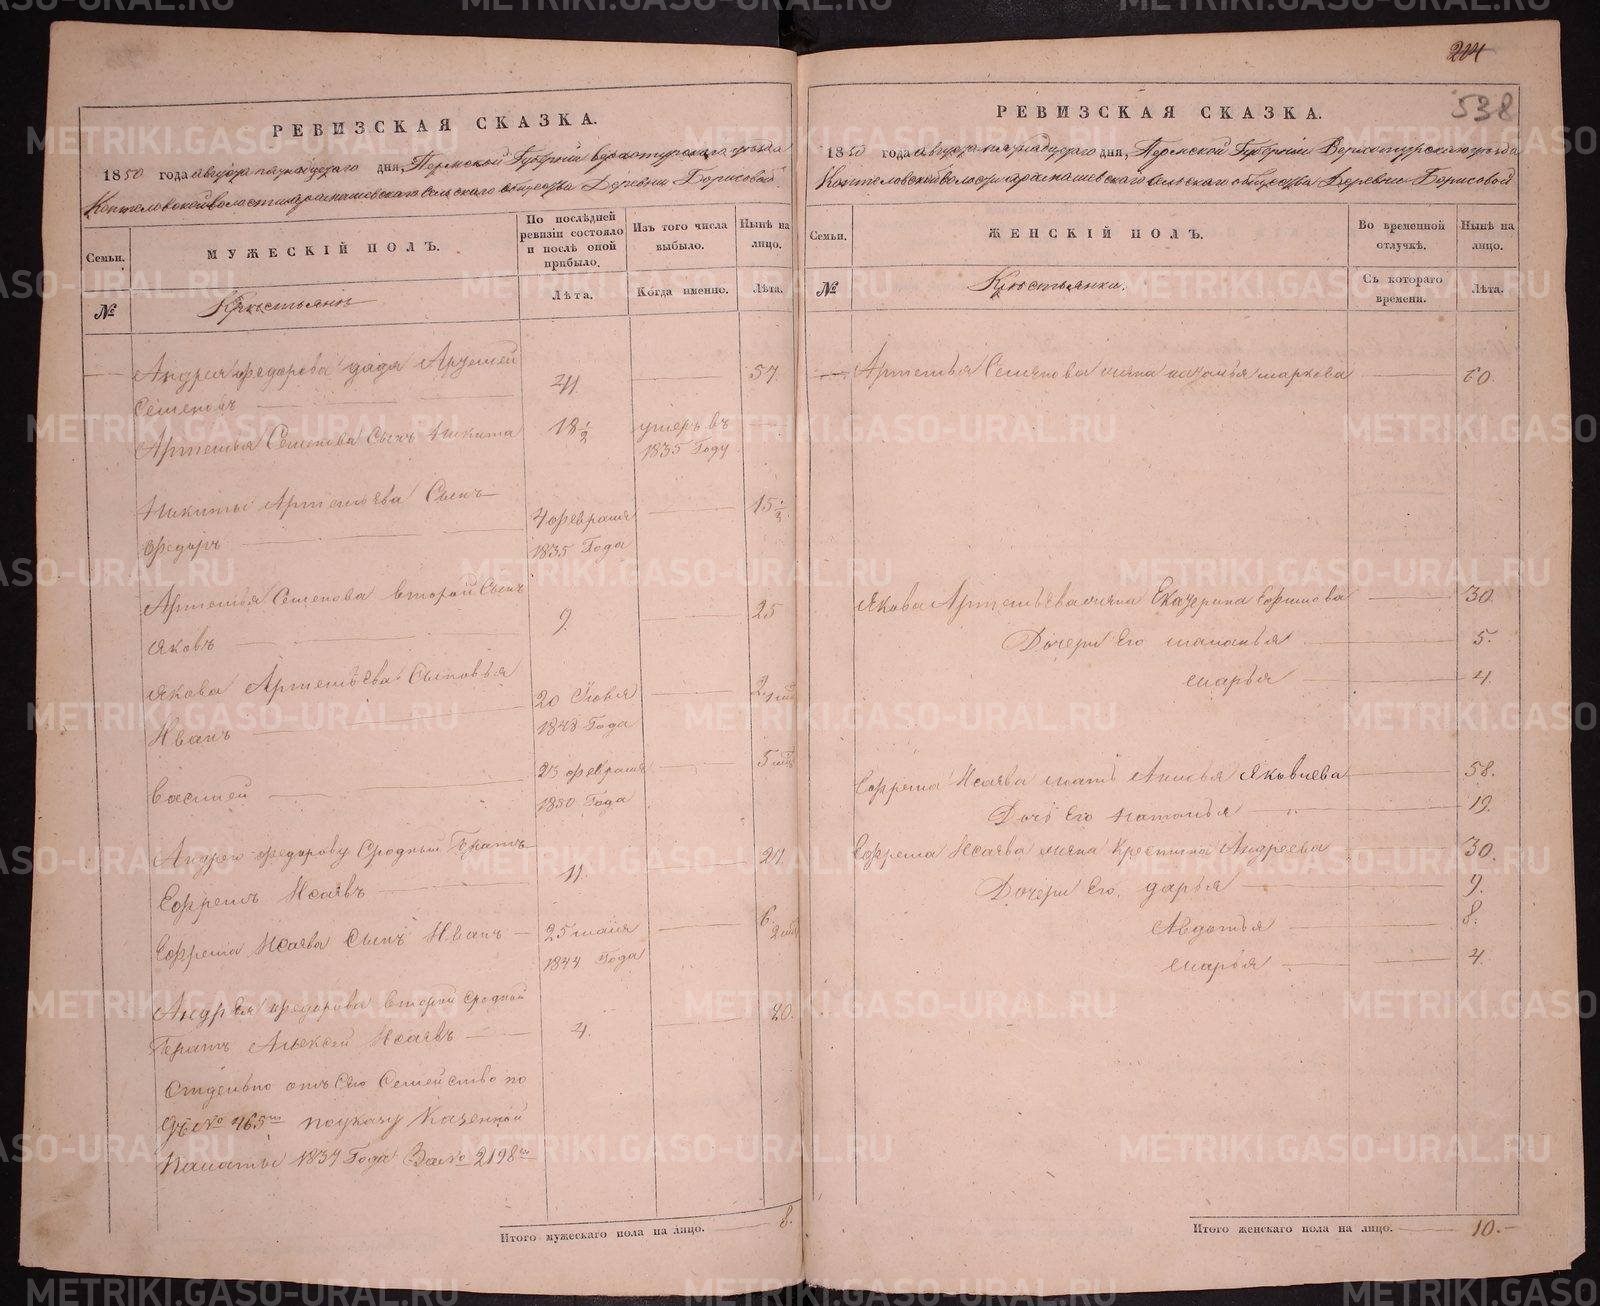 РЕВИЗСКАЯ СКАЗКА.
1850 года августа пятнадцатого дня, Пермской Губернiи Верхотурскаго уѣзда
Коптеловской волости арамашевскаго сельскаго общества Деревни Борисовой
Семьи.
МУЖЕСКIЙ ПОЛЪ.
По послѣдней ревизiи состояло и послѣ оной прибыло.
Изъ того числа выбыло.
Нынѣ на лицо.
№
Крестьянъ
Лѣта.
Когда именно.
Лѣта.
Андрея Федорова дядя Артемей
Семеновъ 41 57.
Артемья Семенова Сынъ Никита 18 1/2 умеръ въ
1835 Году
Никиты Артемьева Сынъ
Федоръ 4 февраля 15 1/2
1835 Года
Артемья Семенова второй Сынъ
Яковъ 9. 25
Якова Артемьева Сыновья
Иванъ 20 Iюня 2.
1848 Года
Василей 23 февраля 5
1850 Года
Андрею Федорову Сродный Братъ
Ефремъ Исаевъ 11. 27.
Ефрема Исаева Сынъ Иванъ 25 маiя 6.
1844 Года
Андрея Федорова второй Сродной
Братъ Алексей Исаевъ 4. 20.
Отдельно отъ Сего Семейство по
№ 465 поуказу Казенной
Палаты 1837 Года За № 2198
Итого мужескаго пола на лицо. 8.
214
538
РЕВИЗСКАЯ СКАЗКА.
1850 года августа пятнадцатаго дня, Пермской Губернiи Верхотурскаго уѣзда
Коптеловской волости арамашевскаго сельскаго общества Деревни Борисовой
Семьи.
ЖЕНСКIЙ ПОЛЪ.
Во временной отлучкѣ.
Нынѣ на лицо.
№
Крестьянки.
Съ котораго времени.
Лѣта.
Артемья Семенова жена маркова 60.
Якова Артемьева жена Екатерина Ефимова 30.
Дочери Его маланья 5.
марья 4.
Ефрема Исаева мать Анисья Яковлева 58.
Дочь Его Наталья 19.
Ефрема Исаева жена Крестина Андреева 30.
Дочери Его, дарья 9.
Авдотья 8.
марья 4.
Итого женскаго пола на лицо. 10.